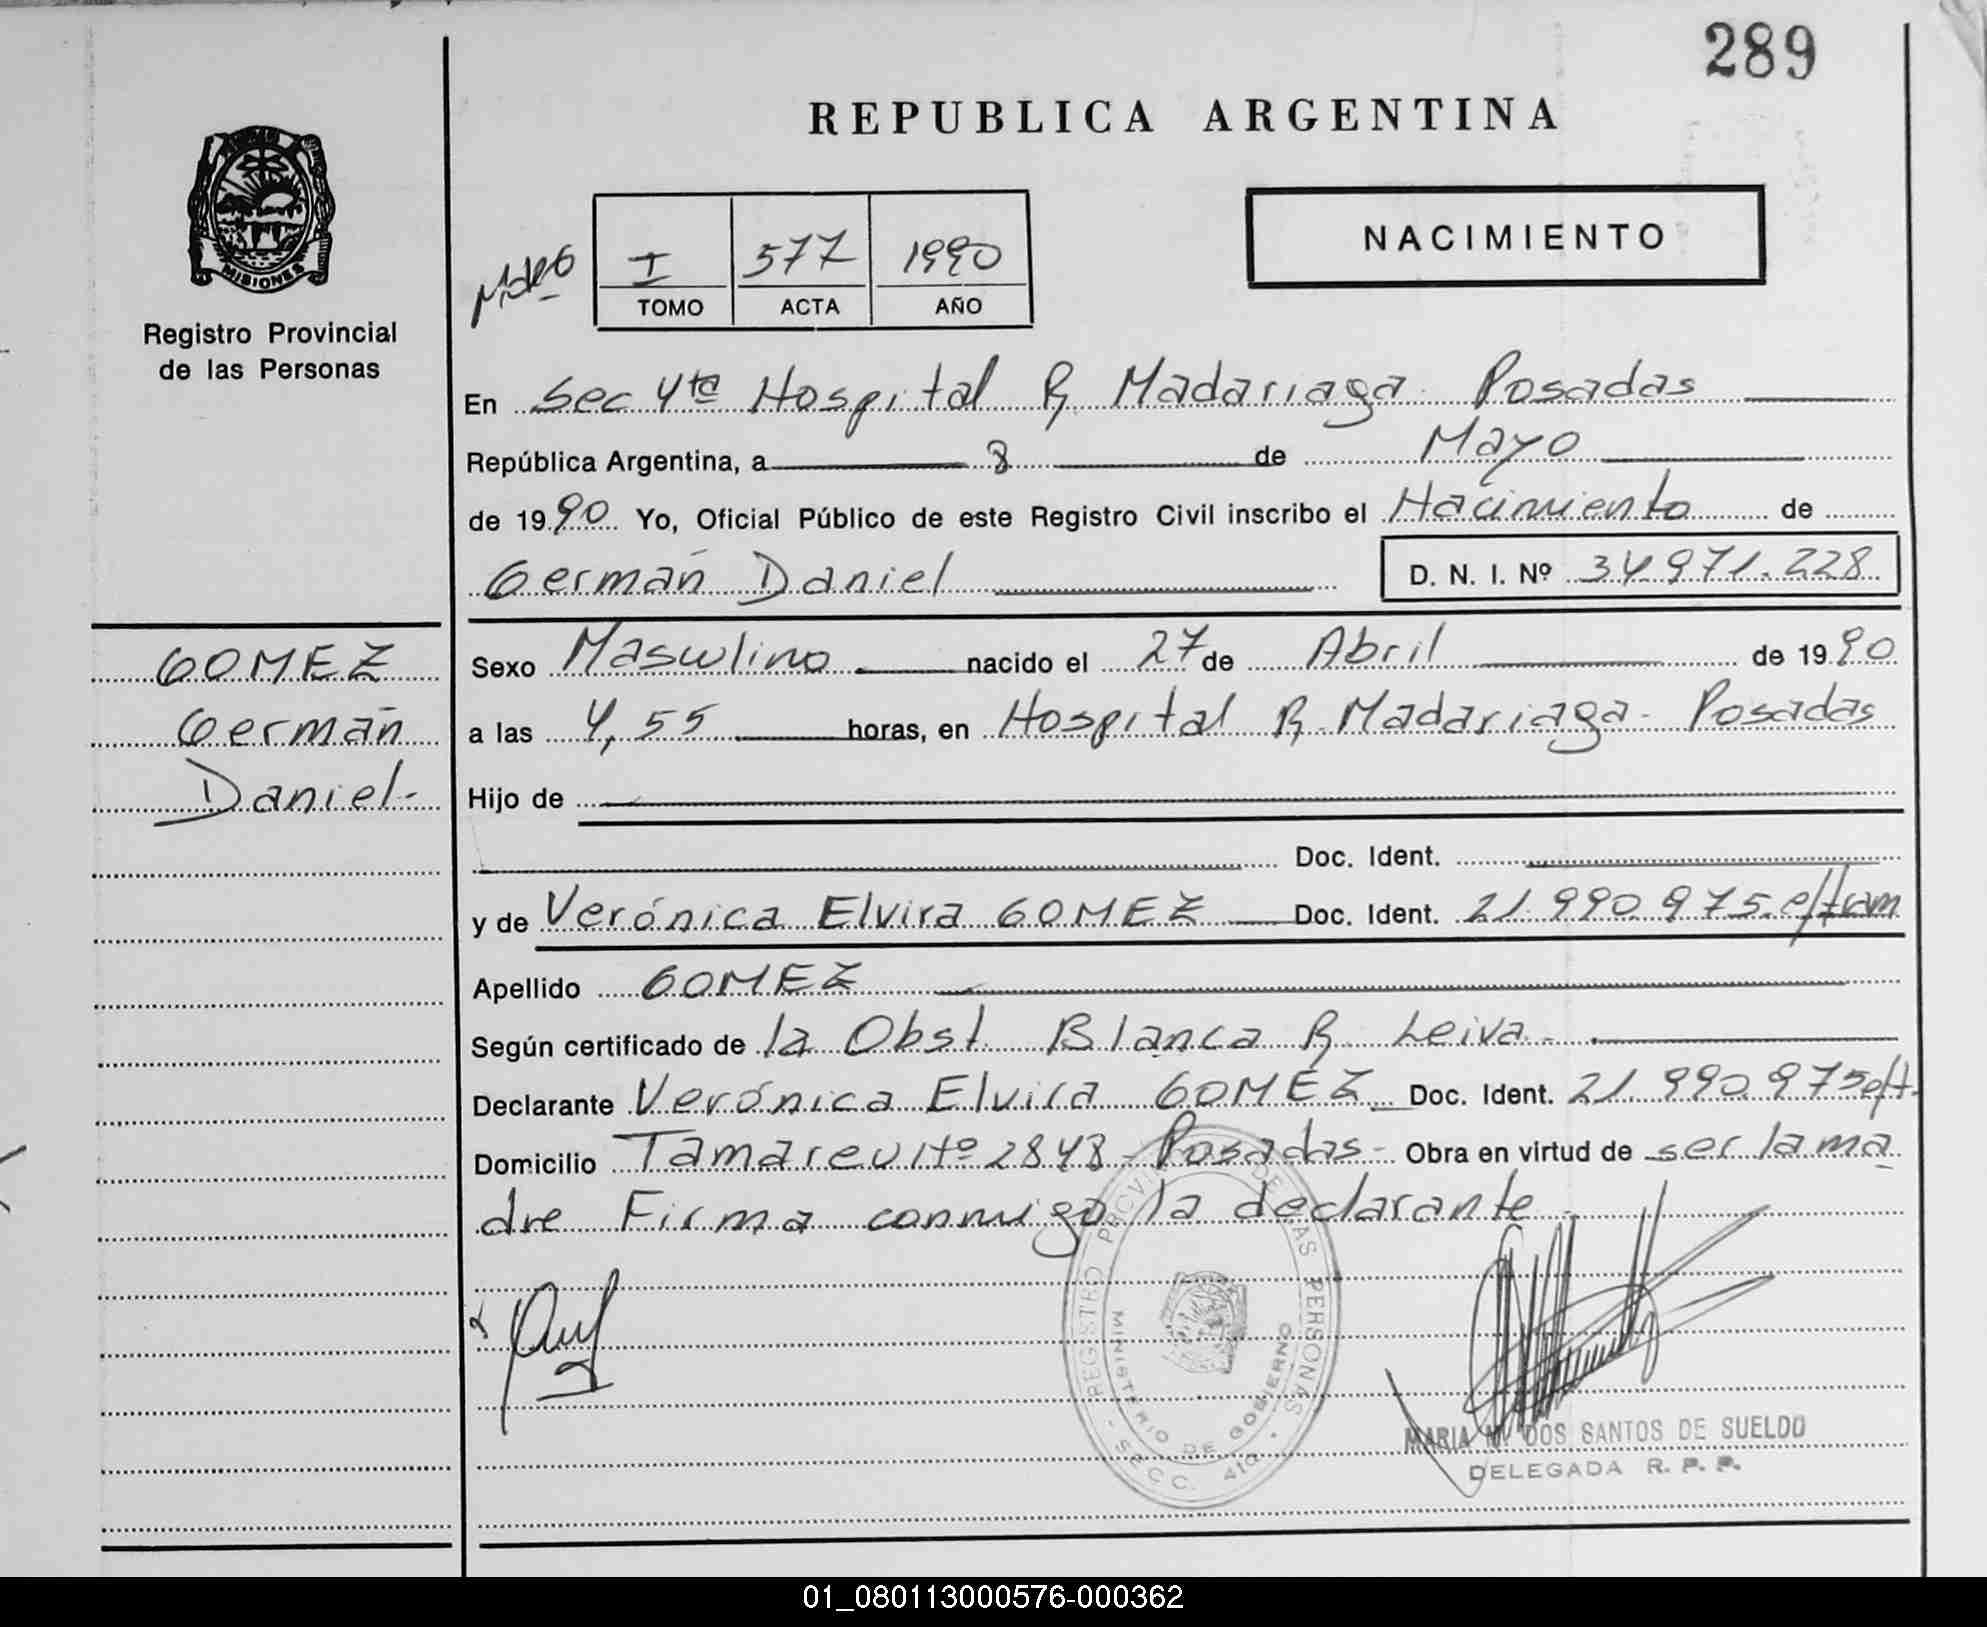 289
REPUBLICA ARGENTINA
MISIONES
Registro Provincial
de las Personas
I 577 1990
TOMO ACTA AÑO
NACIMIENTO
En Sec 4ta Hospital R Madariaga Posadas
República Argentina, a 8 de Mayo
de 1990 Yo, Oficial Público de este Registro Civil inscribo el Nacimiento de
Germán Daniel D. N. I. Nº 34.971.228
GOMEZ
Germán
Daniel-
Sexo Masculino nacido el 27 de Abril de 1990
a las 4,55 horas, en Hospital R. Madariaga- Posadas
Hijo de
Doc. Ident.
y de Verónica Elvira GOMEZ Doc. Ident. 21.990.975
Apellido GOMEZ
Según certificado de la Obst. Blanca R. Leiva.
Declarante Verónica Elvira GOMEZ Doc. Ident. 21.990.975
Domicilio Tamareu Nº 2848 - Posadas- Obra en virtud de ser la ma
dre Firma conmigo la declarante
REGISTRO PROVINCIAL DE LAS PERSONAS
MINISTERIO DE GOBIERNO
- SECC. 4ta -
MARIA M. DOS SANTOS DE SUELDO
DELEGADA R. P. P.
01_080113000576-000362